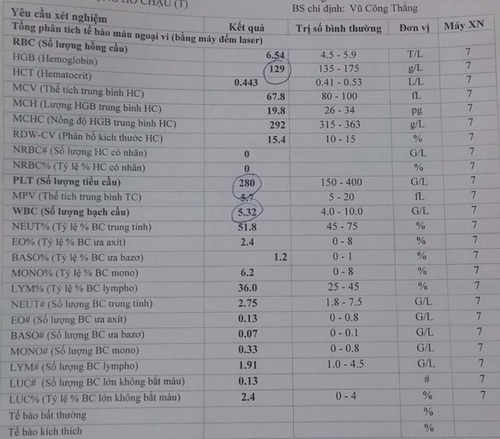 HỒ CHÂU (T)
BS chỉ định: Vũ Công Thắng
Yêu cầu xét nghiệm Kết quả Trị số bình thường Đơn vị Máy XN
Tổng phân tích tế bào máu ngoại vi (bằng máy đếm laser)
RBC (Số lượng hồng cầu) 6.54 4.5 - 5.9 T/L 7
HGB (Hemoglobin) 129 135 - 175 g/L 7
HCT (Hematocrit) 0.443 0.41 - 0.53 L/L 7
MCV (Thể tích trung bình HC) 67.8 80 - 100 fL 7
MCH (Lượng HGB trung bình HC) 19.8 26 - 34 pg 7
MCHC (Nồng độ HGB trung bình HC) 292 315 - 363 g/L 7
RDW-CV (Phân bố kích thước HC) 15.4 10 - 15 % 7
NRBC# (Số lượng HC có nhân) 0 G/L 7
NRBC% (Tỷ lệ % HC có nhân) 0 % 7
PLT (Số lượng tiểu cầu) 280 150 - 400 G/L 7
MPV (Thể tích trung bình TC) 5.7 5 - 20 fL 7
WBC (Số lượng bạch cầu) 5.32 4.0 - 10.0 G/L 7
NEUT% (Tỷ lệ % BC trung tính) 51.8 45 - 75 % 7
EO% (Tỷ lệ % BC ưa axít) 2.4 0 - 8 % 7
BASO% (Tỷ lệ % BC ưa bazơ) 1.2 0 - 1 % 7
MONO% (Tỷ lệ % BC mono) 6.2 0 - 8 % 7
LYM% (Tỷ lệ % BC lympho) 36.0 25 - 45 % 7
NEUT# (Số lượng BC trung tính) 2.75 1.8 - 7.5 G/L 7
EO# (Số lượng BC ưa axít) 0.13 0 - 0.8 G/L 7
BASO# (Số lượng BC ưa bazơ) 0.07 0 - 0.1 G/L 7
MONO# (Số lượng BC mono) 0.33 0 - 0.8 G/L 7
LYM# (Số lượng BC lympho) 1.91 1.0 - 4.5 G/L 7
LUC# (Số lượng BC lớn không bắt màu) 0.13 # 7
LUC% (Tỷ lệ % BC lớn không bắt màu) 2.4 0 - 4 % 7
Tế bào bất thường %
Tế bào kích thích %